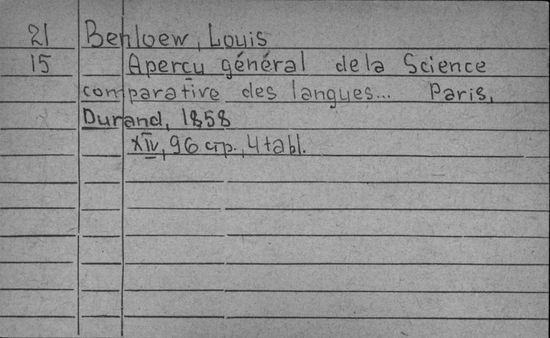 21 Benloew, Louis
15 Aperçu général de la Science
comparative des langues... Paris,
Durand, 1858
XIV, 96 стр., 4 tabl.